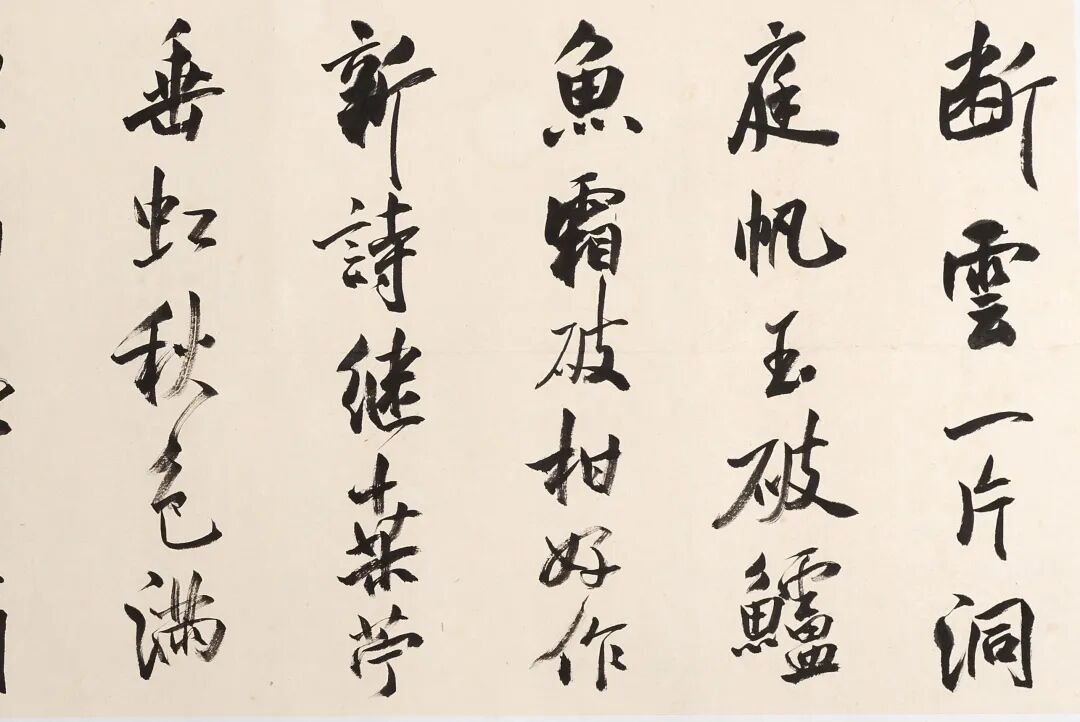 断雲一片洞
庭帆玉破鱸
魚霜破柑好作
新詩继桒苧
垂虹秋色满